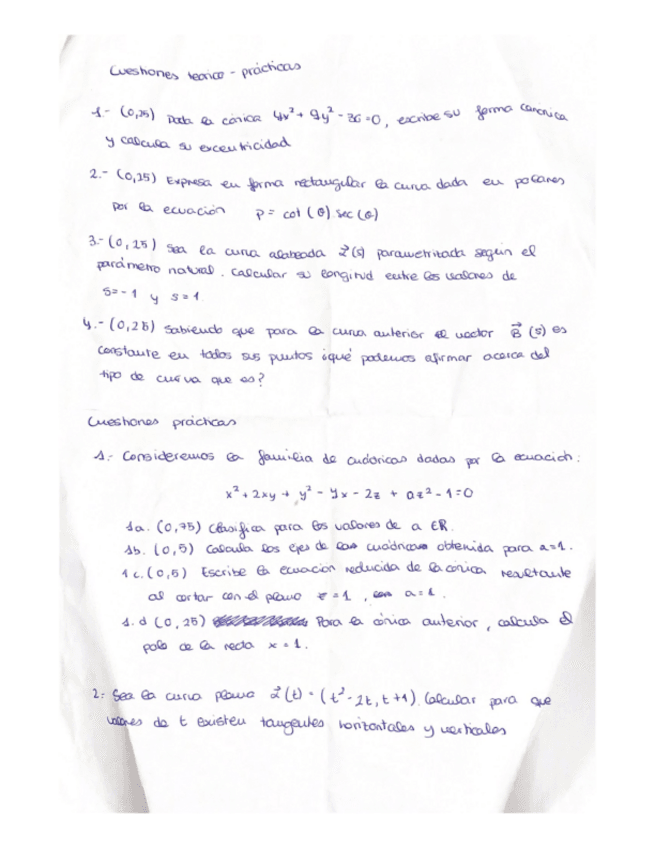 Cuestiones teorico - prácticas
1.- (0,25) Dada la cónica 4x² + 9y² - 36 = 0, escribe su forma canonica
y calcula su excentricidad
2.- (0,25) Expresa en forma rectangular la curva dada en polares
por la ecuación ρ = cot (θ) sec (θ)
3.- (0,25) Sea la curva alabeada α⃗(s) parametritada según el
parámetro natural. Calcular su longitud entre los valores de
s = -1 y s = 1.
4.- (0,25) Sabiendo que para la curva anterior el vector B⃗ (s) es
constante en todos sus puntos ¿qué podemos afirmar acerca del
tipo de curva que es?
Cuestiones prácticas
1.- Consideremos la familia de cuádricas dadas por la ecuación:
x² + 2xy + y² - 4x - 2z + az² - 1 = 0
1a. (0,75) Clasifica para los valores de a ∈ R.
1b. (0,5) Calcula los ejes de cuádrica obtenida para a=1.
1c. (0,5) Escribe la ecuación reducida de la cónica resultante
al cortar con el plano z = 1, a = 1.
1.d (0,25) Para la cónica anterior, calcula el
polo de la recta x = 1.
2.- Sea la curva plana α⃗(t) = (t² - 2t, t + 1). Calcular para que
valores de t existen tangentes horizontales y verticales